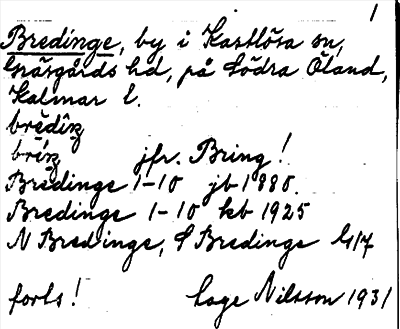 1
Bredinge, by i Kastlösa sn,
Gräsgårds hd, på Södra Öland,
Kalmar l.
jfr. Bring!
Bredinge 1-10 jb 1880.
Bredinge 1-10 kb 1925
N Bredinge, S Bredinge
forts! Lage Nilsson 1931